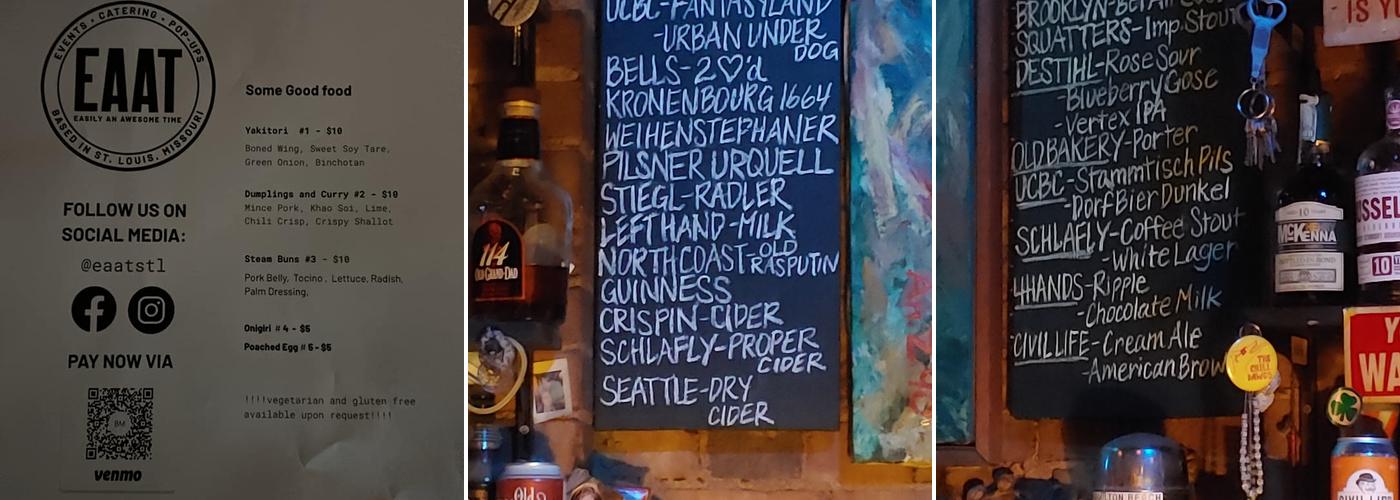 EVENTS • CATERING • POP-UPS
EAAT
EASILY AN AWESOME TIME
BASED IN ST. LOUIS, MISSOURI
FOLLOW US ON
SOCIAL MEDIA:
@eaatstl
PAY NOW VIA
BM
venmo
Some Good food
Yakitori #1 - $10
Boned Wing, Sweet Soy Tare,
Green Onion, Binchotan
Dumplings and Curry #2 - $10
Mince Pork, Khao Soi, Lime,
Chili Crisp, Crispy Shallot
Steam Buns #3 - $10
Pork Belly, Tocino, Lettuce, Radish,
Palm Dressing,
Onigiri # 4 - $5
Poached Egg # 5 - $5
!!!!vegetarian and gluten free
available upon request!!!!
UCBC-FANTASYLAND
-URBAN UNDER
DOG
BELLS-2♡'d
KRONENBOURG 1664
WEIHENSTEPHANER
PILSNER URQUELL
STIEGL-RADLER
LEFT HAND-MILK
NORTH COAST-OLD
RASPUTIN
GUINNESS
CRISPIN-CIDER
SCHLAFLY-PROPER
CIDER
SEATTLE-DRY
CIDER
114
OLD GRAND-DAD
Old
BROOKLYN-Bel Air
SQUATTERS-Imp. Stout
DESTIHL-Rose Sour
-Blueberry Gose
-Vertex IPA
OLD BAKERY-Porter
UCBC-Stammtisch Pils
-Dorf Bier Dunkel
SCHLAFLY-Coffee Stout
-White Lager
4HANDS-Ripple
-Chocolate Milk
CIVIL LIFE-Cream Ale
-American Brow
IS YO
10
McKENNA
BOTTLED IN BOND
USSEL
10
WA
THE
CHILL
DAWGS